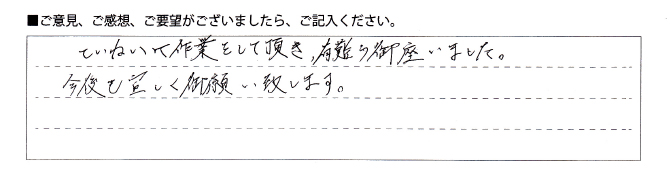 ■ご意見、ご感想、ご要望がございましたら、ご記入ください。
ていねいに作業をして頂き、有難う御座いました。
今後も宜しく御願い致します。